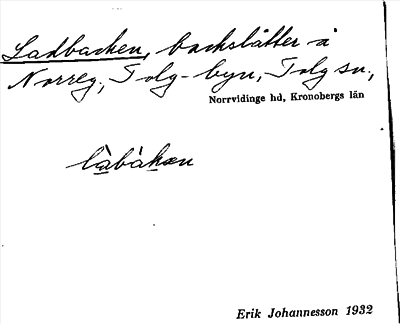 Ladbacken, backslåtter å
Norreg., Tolg-byn, Tolg sn.,
Norrvidinge hd, Kronobergs län
làbàkæn
Erik Johannesson 1932